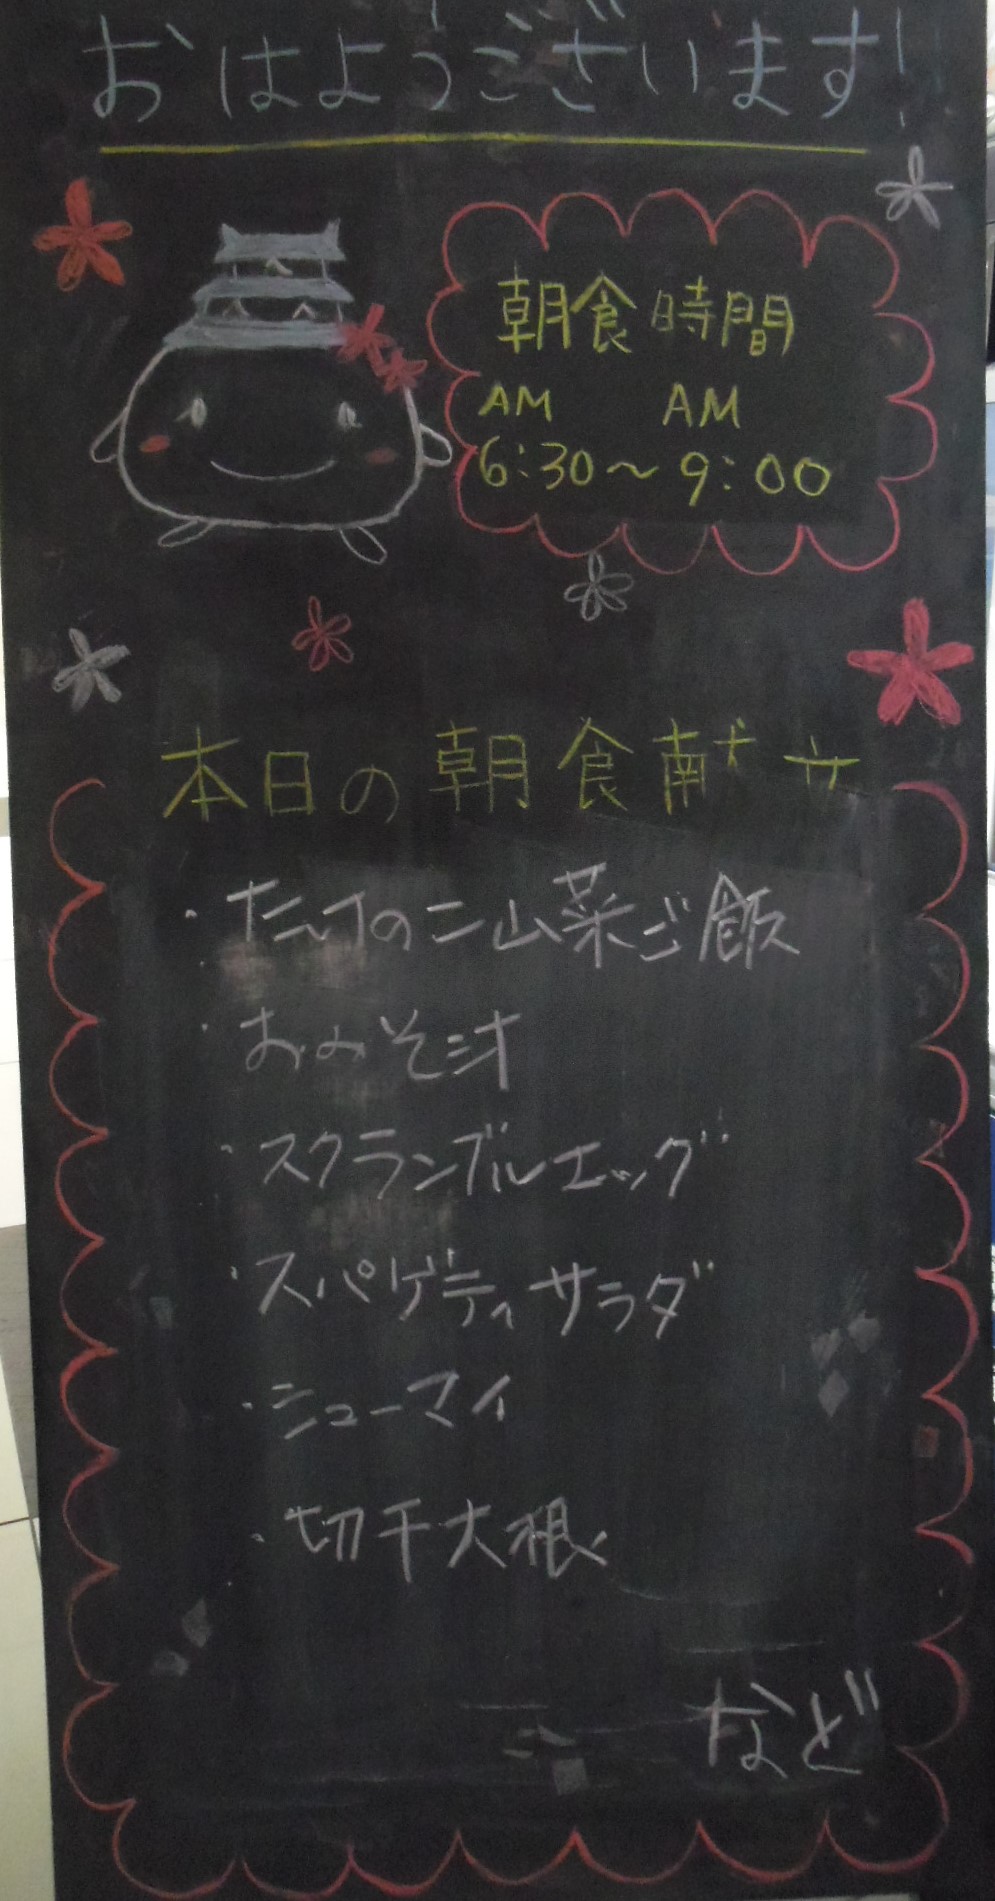 おはようございます!
朝食時間
AM AM
6:30〜9:00
本日の朝食献立
・たけのこ山菜ご飯
・おみそ汁
・スクランブルエッグ
・スパゲティサラダ
・シューマイ
・切干大根
など